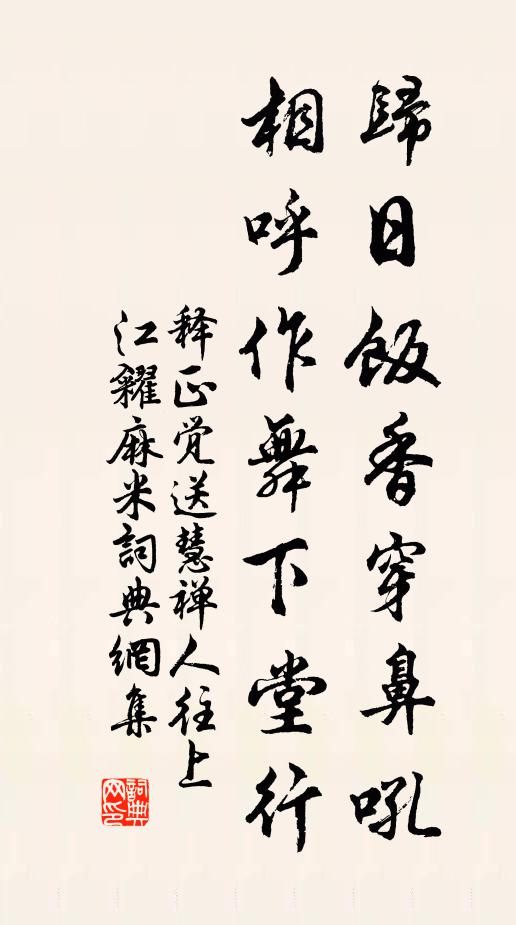 歸日飯香穿鼻吼
相呼作舞下堂行
释正觉送慧禅人往上
江糴麻米詞典網集
詞典网印